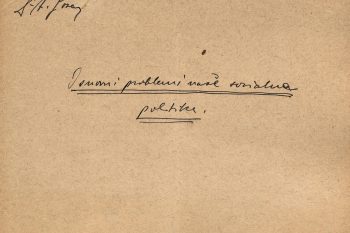 Osnovni problemi naše socialne
politike.